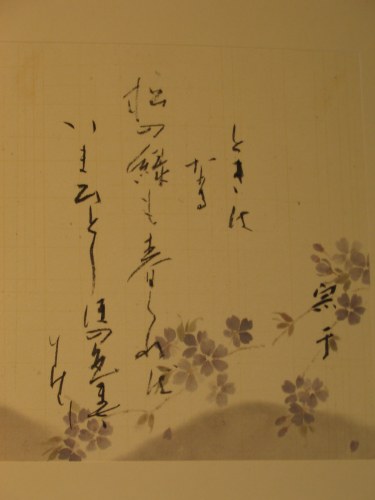 宗于
ときは
なる
松の緑も春くれは
いまひとしほの色ま
さりけり